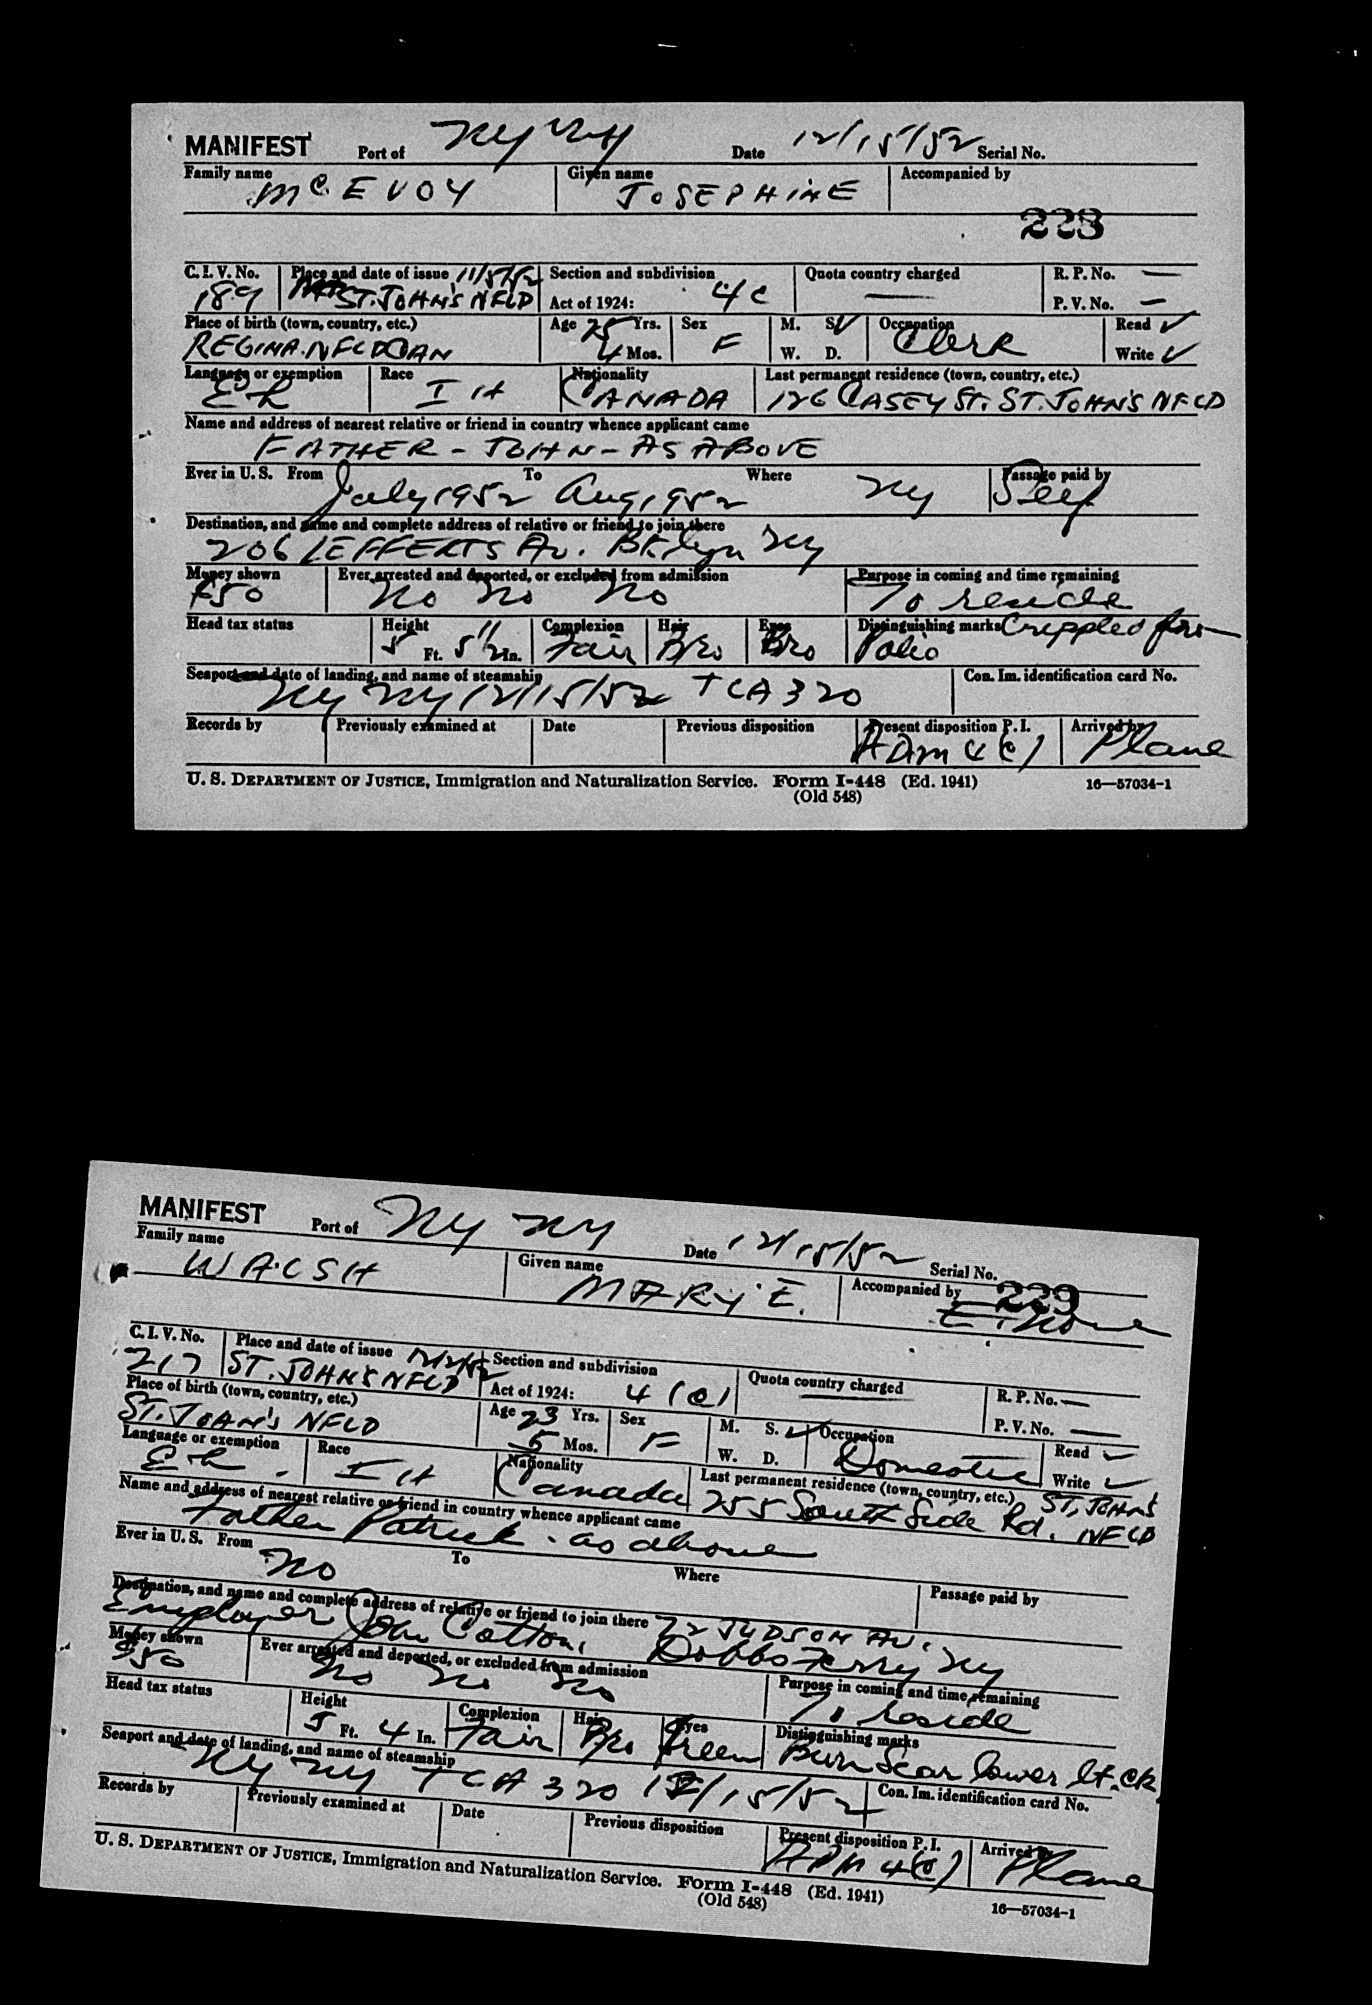 MANIFEST Port of NY NY Date 12/15/52 Serial No.
Family name McEVOY Given name JOSEPHINE Accompanied by
228
C. I. V. No. 189 Place and date of issue 11/5/52 ST. JOHN'S NFLD Section and subdivision Act of 1924: 4C Quota country charged — R. P. No. —
P. V. No. —
Place of birth (town, country, etc.) REGINA. NFLD CAN Age 25 Yrs. 4 Mos. Sex F M. S. ✓ W. D. Occupation Clerk Read ✓
Write ✓
Language or exemption Race IH Nationality CANADA Last permanent residence (town, country, etc.) 126 CASEY ST. ST. JOHN'S NFLD
Name and address of nearest relative or friend in country whence applicant came
FATHER - JOHN - AS ABOVE
Ever in U. S. From July 1952 To Aug, 1952 Where NY Passage paid by Self
Destination, and name and complete address of relative or friend to join there
206 LEFFERTS Av. Bklyn NY
Money shown $50 Ever arrested and deported, or excluded from admission No No No Purpose in coming and time remaining To reside
Head tax status Height 5 Ft. 5 1/2 In. Complexion Fair Hair Bro Eyes Bro Distinguishing marks Crippled from Polio
Seaport and date of landing, and name of steamship NY NY 12/15/52 TCA 320 Con. Im. identification card No.
Records by Previously examined at Date Previous disposition Present disposition P. I. ADM 4(C) Arrived by Plane
U. S. DEPARTMENT OF JUSTICE, Immigration and Naturalization Service. Form I-448 (Ed. 1941) 16—57034-1
(Old 548)
MANIFEST Port of NY NY Date 12/15/52 Serial No. 229
Family name WALSH Given name MARY E. Accompanied by
C. I. V. No. 217 Place and date of issue 12/2/52 ST. JOHN'S NFLD Section and subdivision Act of 1924: 4(C) Quota country charged — R. P. No. —
P. V. No. —
Place of birth (town, country, etc.) ST. JOHN'S NFLD Age 23 Yrs. 5 Mos. Sex F M. S. ✓ W. D. Occupation Domestic Read ✓
Write ✓
Language or exemption Race IH Nationality Canada Last permanent residence (town, country, etc.) 255 South Side Rd. ST. JOHN'S NFLD
Name and address of nearest relative or friend in country whence applicant came
Father Patrick - as above
Ever in U. S. From No To Where Passage paid by
Destination, and name and complete address of relative or friend to join there 72 JUDSON AV.
Employer John Cotton, Dobbs Ferry NY
Money shown $50 Ever arrested and deported, or excluded from admission No No No Purpose in coming and time remaining To reside
Head tax status Height 5 Ft. 4 In. Complexion Fair Hair Bro Eyes Green Distinguishing marks Burn Scar lower lt. ck.
Seaport and date of landing, and name of steamship NY NY TCA 320 12/15/52 Con. Im. identification card No.
Records by Previously examined at Date Previous disposition Present disposition P. I. ADM 4(C) Arrived by Plane
U. S. DEPARTMENT OF JUSTICE, Immigration and Naturalization Service. Form I-448 (Ed. 1941) 16—57034-1
(Old 548)